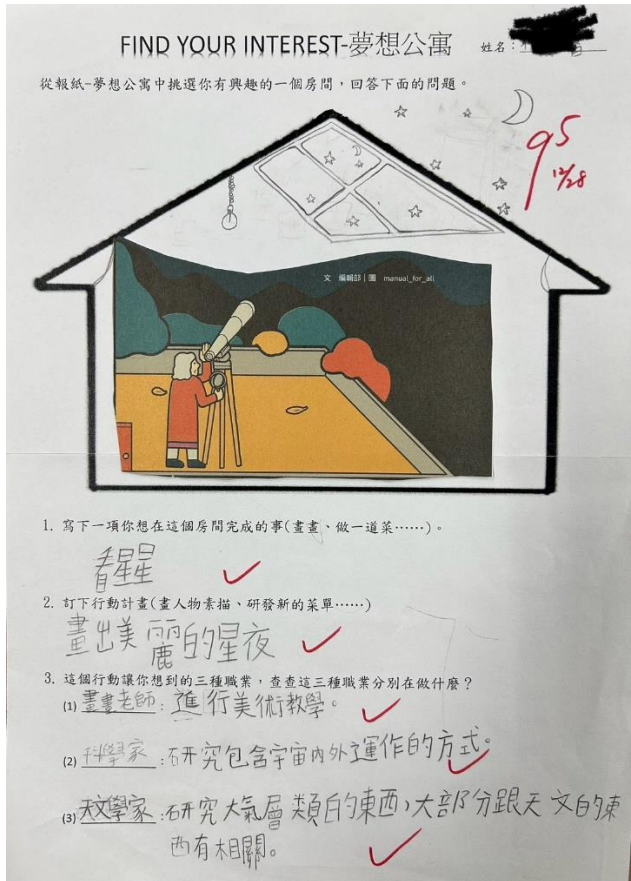 FIND YOUR INTEREST-夢想公寓
姓名：
從報紙-夢想公寓中挑選你有興趣的一個房間，回答下面的問題。
95
12/28
文 編輯部｜圖 manual_for_all
1. 寫下一項你想在這個房間完成的事(畫畫、做一道菜……)。
看星星
2. 訂下行動計畫(畫人物素描、研發新的菜單……)
畫出美麗的星夜
3. 這個行動讓你想到的三種職業，查查這三種職業分別在做什麼？
(1) 畫畫老師：進行美術教學。
(2) 科學家：研究包含宇宙內外運作的方式。
(3) 天文學家：研究大氣層類的東西，大部分跟天文的東
西有相關。